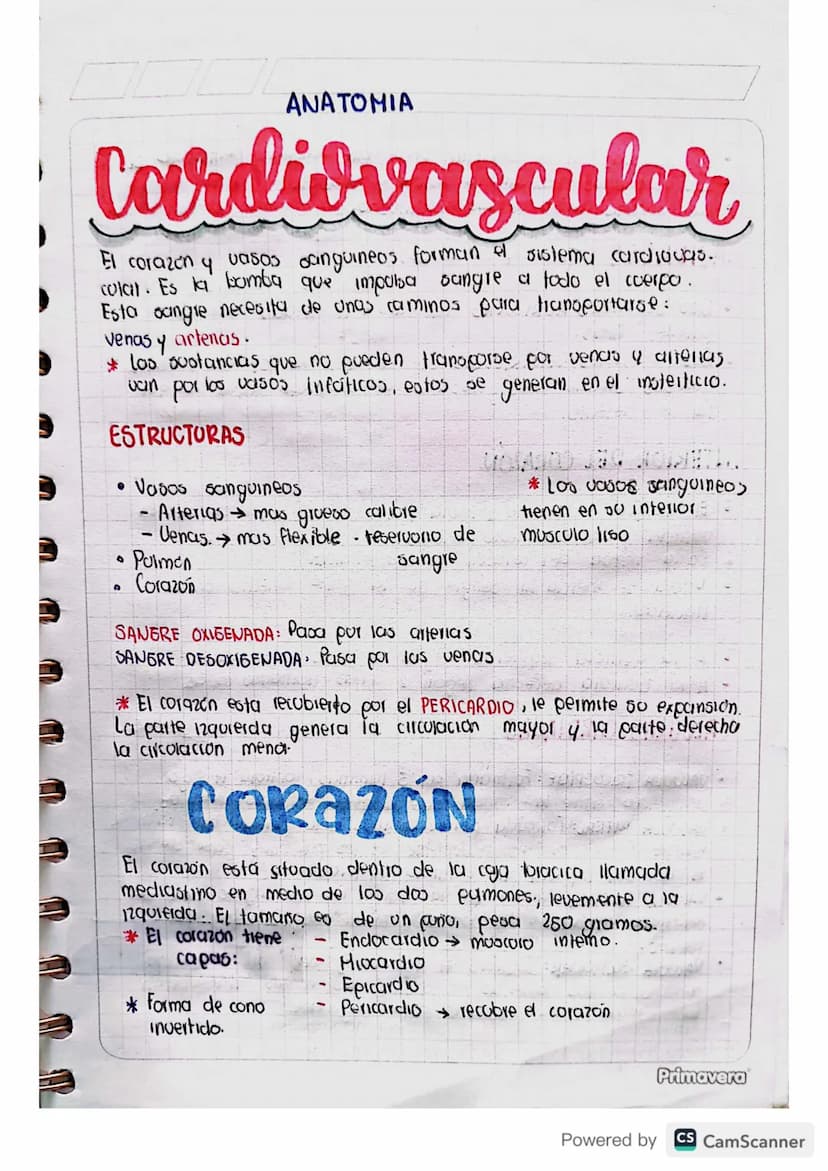 ANATOMIA
Cardiovascular
El corazón y vasos sanguineos forman el sistema cardiovas-
cular. Es la bomba que impulsa sangre a todo el cuerpo.
Esta sangre necesita de unos caminos para transportarse:
venas y arterias.
* Las sustancias que no pueden transporse por venas y arterias
van por los vasos infáticos, estos se generan en el insterticio.
ESTRUCTURAS
• Vasos sanguineos
- Arterias → mas grueso calibre
- Venas. → mas flexible - reservorio de
sangre
• Pulmón
• Corazón
* Los vasos sanguineos
tienen en su interior
musculo liso
SANGRE OXIGENADA: Pasa por las arterias
SANGRE DESOXIGENADA: Pasa por las venas
* El corazón esta recubierto por el PERICARDIO, le permite su expansión.
La parte izquierda genera la circulación mayor y la parte derecha
la circulación menor.
CORAZÓN
El corazón está situado dentro de la caja toracica llamada
mediastino en medio de los dos pumones, levemente a la
izquierda. El tamaño es de un puño, pesa 250 gramos.
* El corazón tiene
capas:
- Endocardio → musculo interno.
- Miocardio
- Epicardio
- Pericardio → recubre el corazón
* Forma de cono
invertido.
Primavera
Powered by CS CamScanner